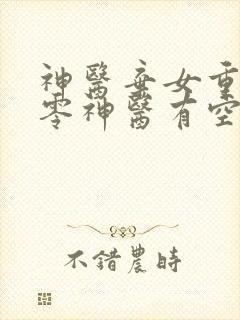 神醫棄女重
零神醫有空
不錯農時